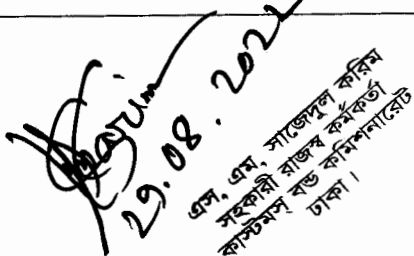 29.08.2022
এস, এম, সাজেদুল করিম
সহকারী রাজস্ব কর্মকর্তা
কাস্টমস্ বন্ড কমিশনারেট
ঢাকা।